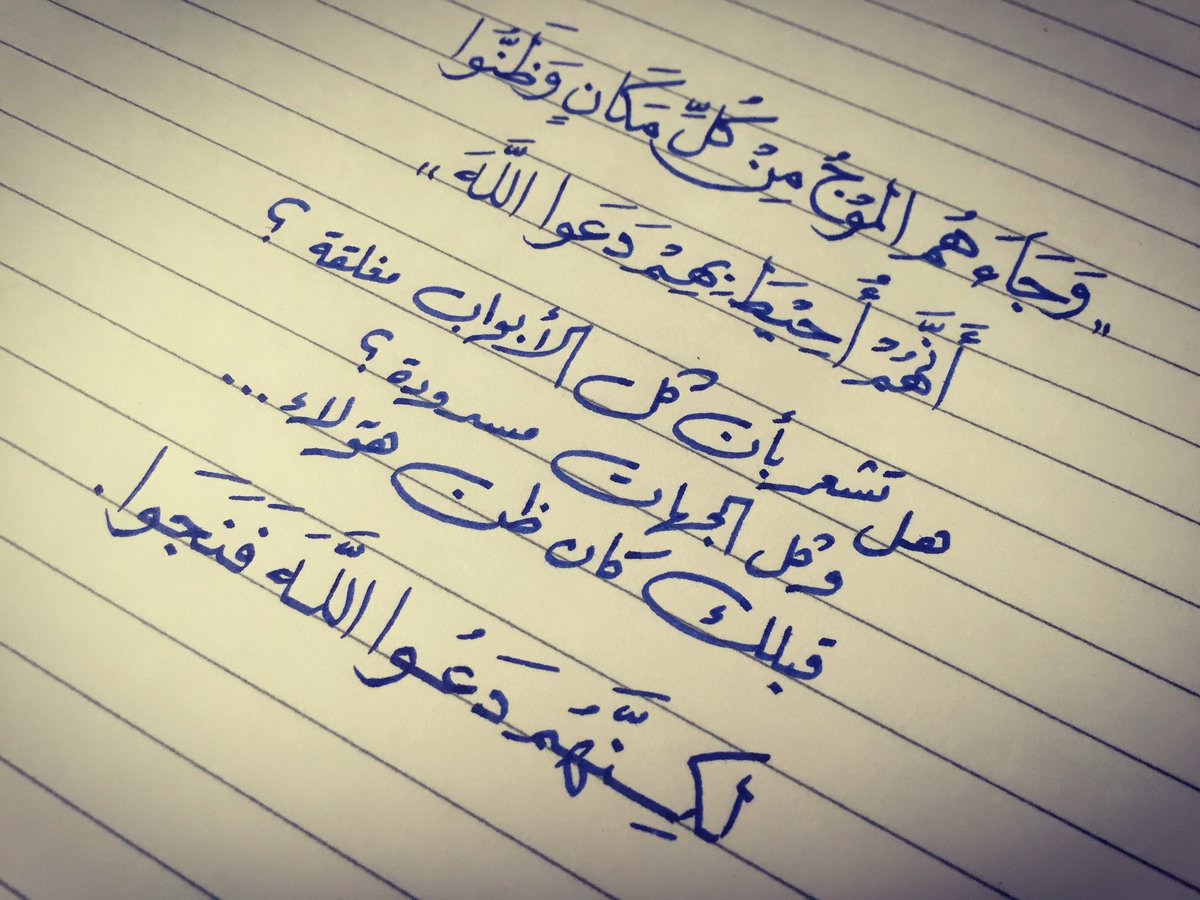 "وَجَآءَهُمُ الْمَوْجُ مِنْ كُلِّ مَكَانٍ وَظَنُّوا
أَنَّهُمْ أُحِيْطَ بِهِمْ دَعَوا اللَّهَ"
هل تشعر بأن كل الأبواب مغلقة؟
وكل الجهات مسدودة؟
قبلك كان ظن هؤلاء...
لكِنَّهُم دَعُوا اللَّهَ فَنَجَوا.